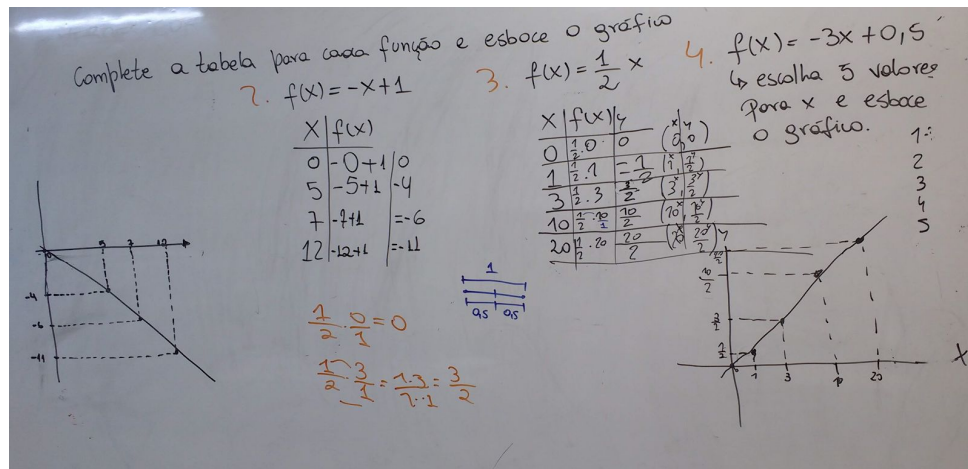 Complete a tabela para cada função e esboce o gráfico
2. f(x) = -x+1
x | f(x)
0 | -0+1 | 0
5 | -5+1 | -4
7 | -7+1 | =-6
12 | -12+1 | =-11
5 7 12
-4
-6
-11
1/2 · 0/1 = 0
1/2 · 3/1 = 1·3/2·1 = 3/2
1
0,5 0,5
3. f(x) = 1/2 x
x | f(x) | y
0 | 1/2 · 0 | 0 (0, 0)
1 | 1/2 · 1 | = 1/2 (1, 1/2)
3 | 1/2 · 3 | 3/2 (3, 3/2)
10 | 1/2 · 10/1 | 10/2 (10, 10/2)
20 | 1/2 · 20 | 20/2 (20, 20/2)
4. f(x) = -3x + 0,5
↳ escolha 5 valores
para x e esboce
o gráfico.
1
2
3
4
5
y
20/2
10/2
3/2
1/2
1 3 10 20
x